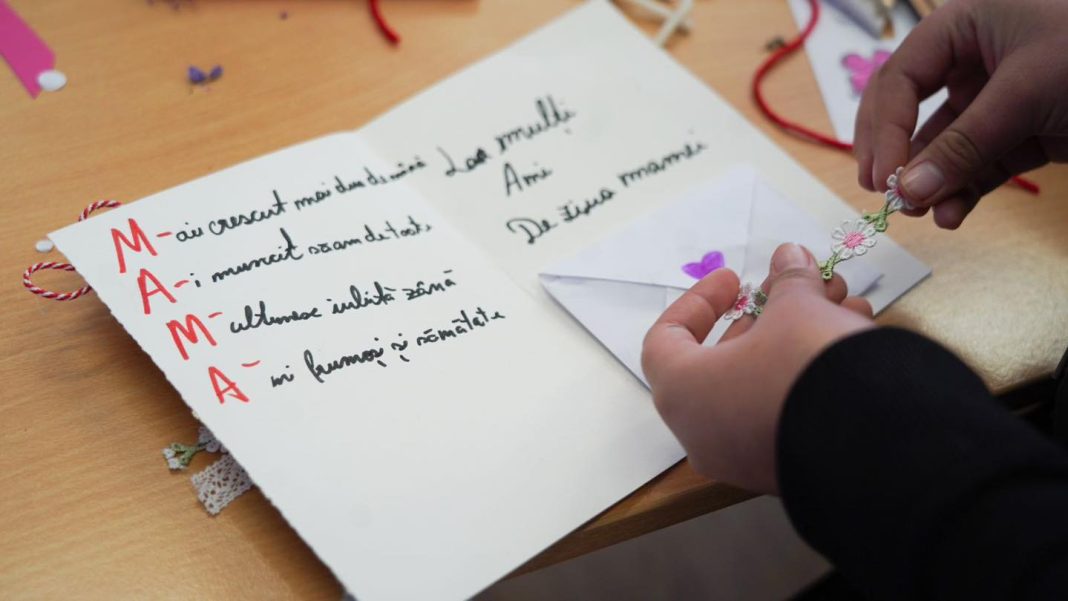 M-ai crescut mai dus de mână
A-i muncit să am de toate
M-ultumesc iubită zână
A-ni frumoși și sămătate
La mulți
Ami
De ziua mamei